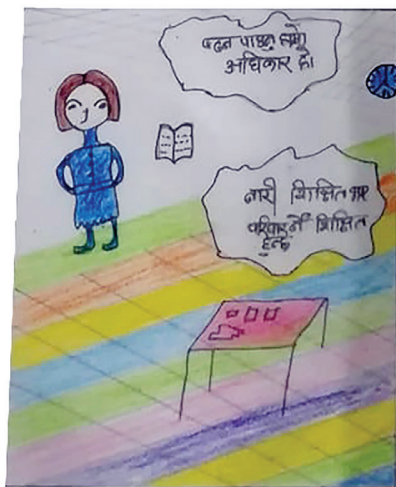 पढन पाउनु हाम्रो
अधिकार हो।
नारी शिक्षित भए
परिवार नै शिक्षित
हुन्छ